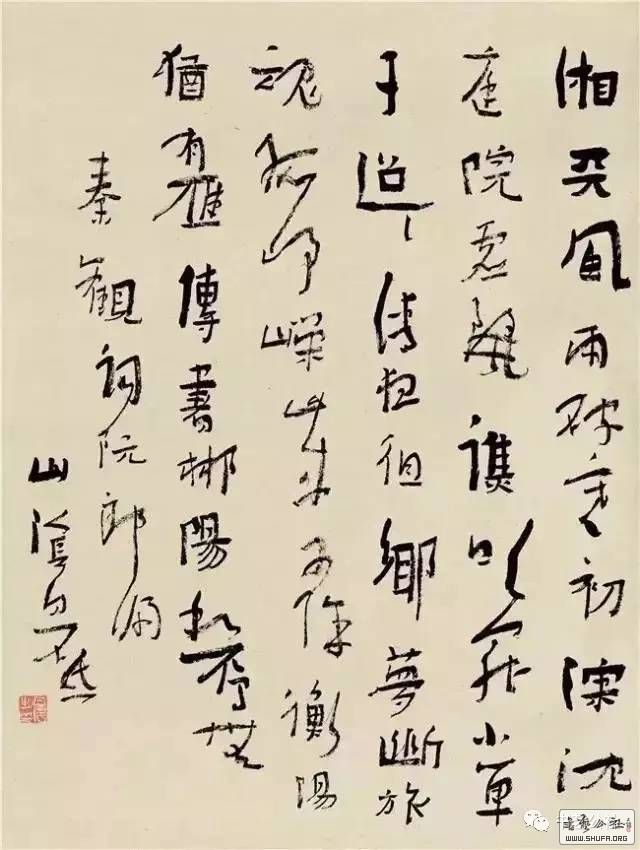 湘天風雨破寒初深沈
庭院虛麗譙吹罷小單
于迢〻清夜徂鄉夢斷旅
魂孤崢嶸歲又除衡陽
猶有雁傳書郴陽和雁無
秦觀詞阮郎歸
山陰
WWW.SHUFA.ORG